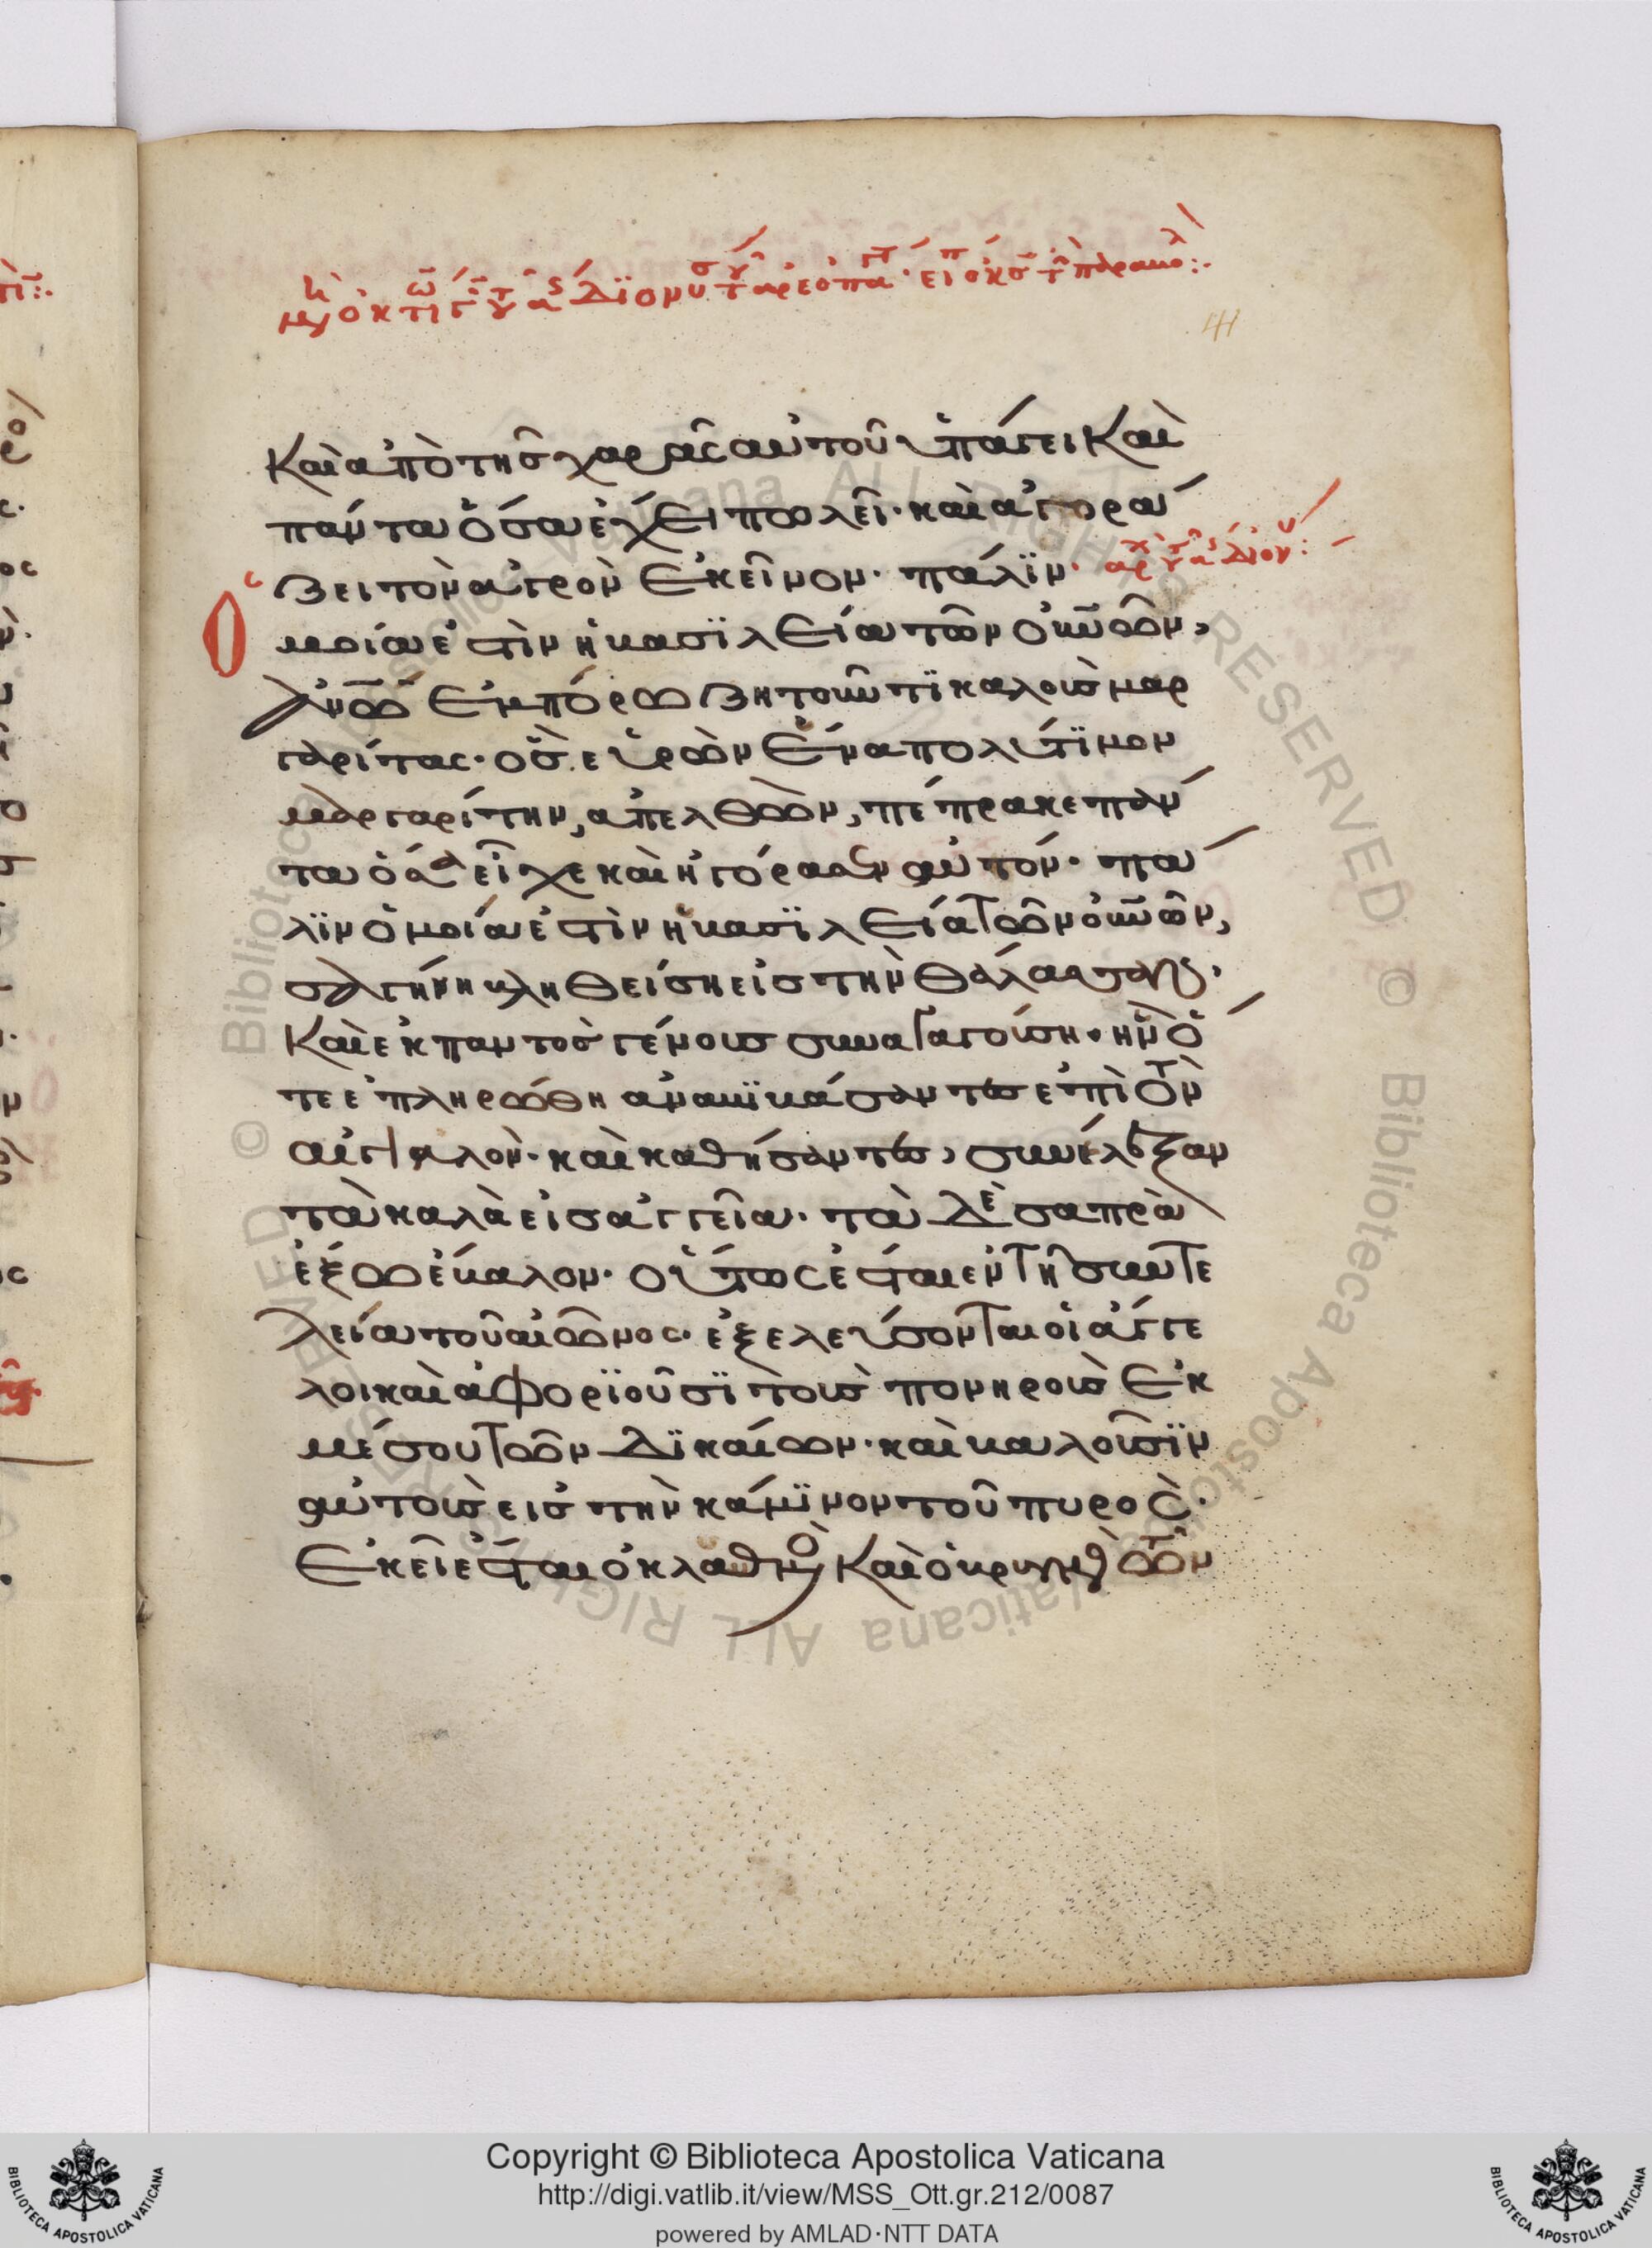 Καὶ ἀπὸ τῆς χαρᾶς αὐτοῦ ὑπάγει καὶ
πάντα ὅσα ἔχει πωλεῖ· καὶ ἀγορά
ζει τὸν ἀγρὸν ἐκεῖνον· πάλϊν·
Ὁ μοία ἐστὶν ἡ βασϊλεία τῶν οὐνῶν,
ἀνῶ ἐμπόρω ζητοῦντϊ καλοὺς μαρ
γαρίτας· ὃς εὑρὼν ἕνα πολύτϊμον
μαργαρίτην, ἀπελθὼν, πέπρακε πάν
τα ὅσα εἶχε καὶ ἠγόρασεν αὐτόν· πά
λϊν ὁμοία ἐστὶν ἡ βασϊλεία τῶν οὐνῶν,
σαγήνη βληθείση εἰς τὴν θάλασσαν·
Καὶ ἐκ παντὸς γένους συναγαγούση· ἣν ὅ
τε ἐπληρώθη ἀναβϊβάσαντες ἐπὶ τὸν
αἰγιαλὸν· καὶ καθήσαντες, συνέλεξαν
τὰ καλὰ εἰς ἀγγεῖα· τὰ δὲ σαπρὰ
ἔξω ἔβαλον· οὕτως ἔσται ἐν τῆ συντε
λεία τοῦ αἰῶνος· ἐξελεύσονται οἱ ἄγγε
λοι καὶ ἀφορϊοῦσϊ τοὺς πονηροὺς ἐκ
μέσου τῶν δϊκαίων· καὶ βαλοῦσϊν
αὐτοὺς εἰς τὴν κάμϊνον τοῦ πυρὸς·
Ἐκεῖ ἔσται ὁ κλαυθμὸς καὶ ὁ βρυγμὸς τῶν
Copyright © Biblioteca Apostolica Vaticana
http://digi.vatlib.it/view/MSS_Ott.gr.212/0087
powered by AMLAD·NTT DATA